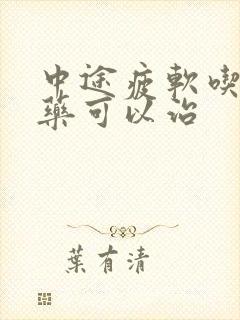 中途疲軟喫
藥可以治
葉有清